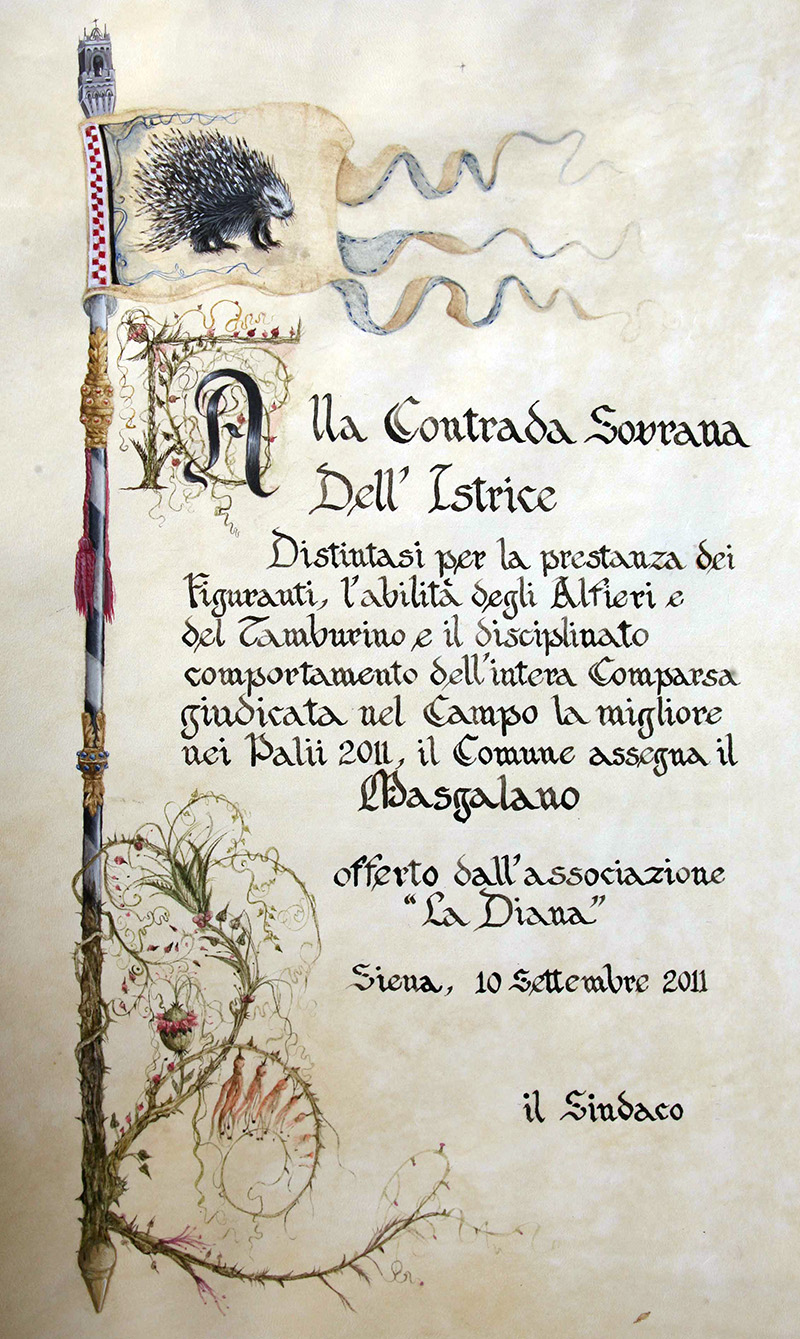 Alla Contrada Sovrana
Dell' Istrice
Distintasi per la prestanza dei
Figuranti, l'abilità degli Alfieri e
del Tamburino e il disciplinato
comportamento dell'intera Comparsa
giudicata nel Campo la migliore
nei Palii 2011, il Comune assegna il
Masgalano
offerto dall'associazione
"La Diana"
Siena, 10 Settembre 2011
il Sindaco